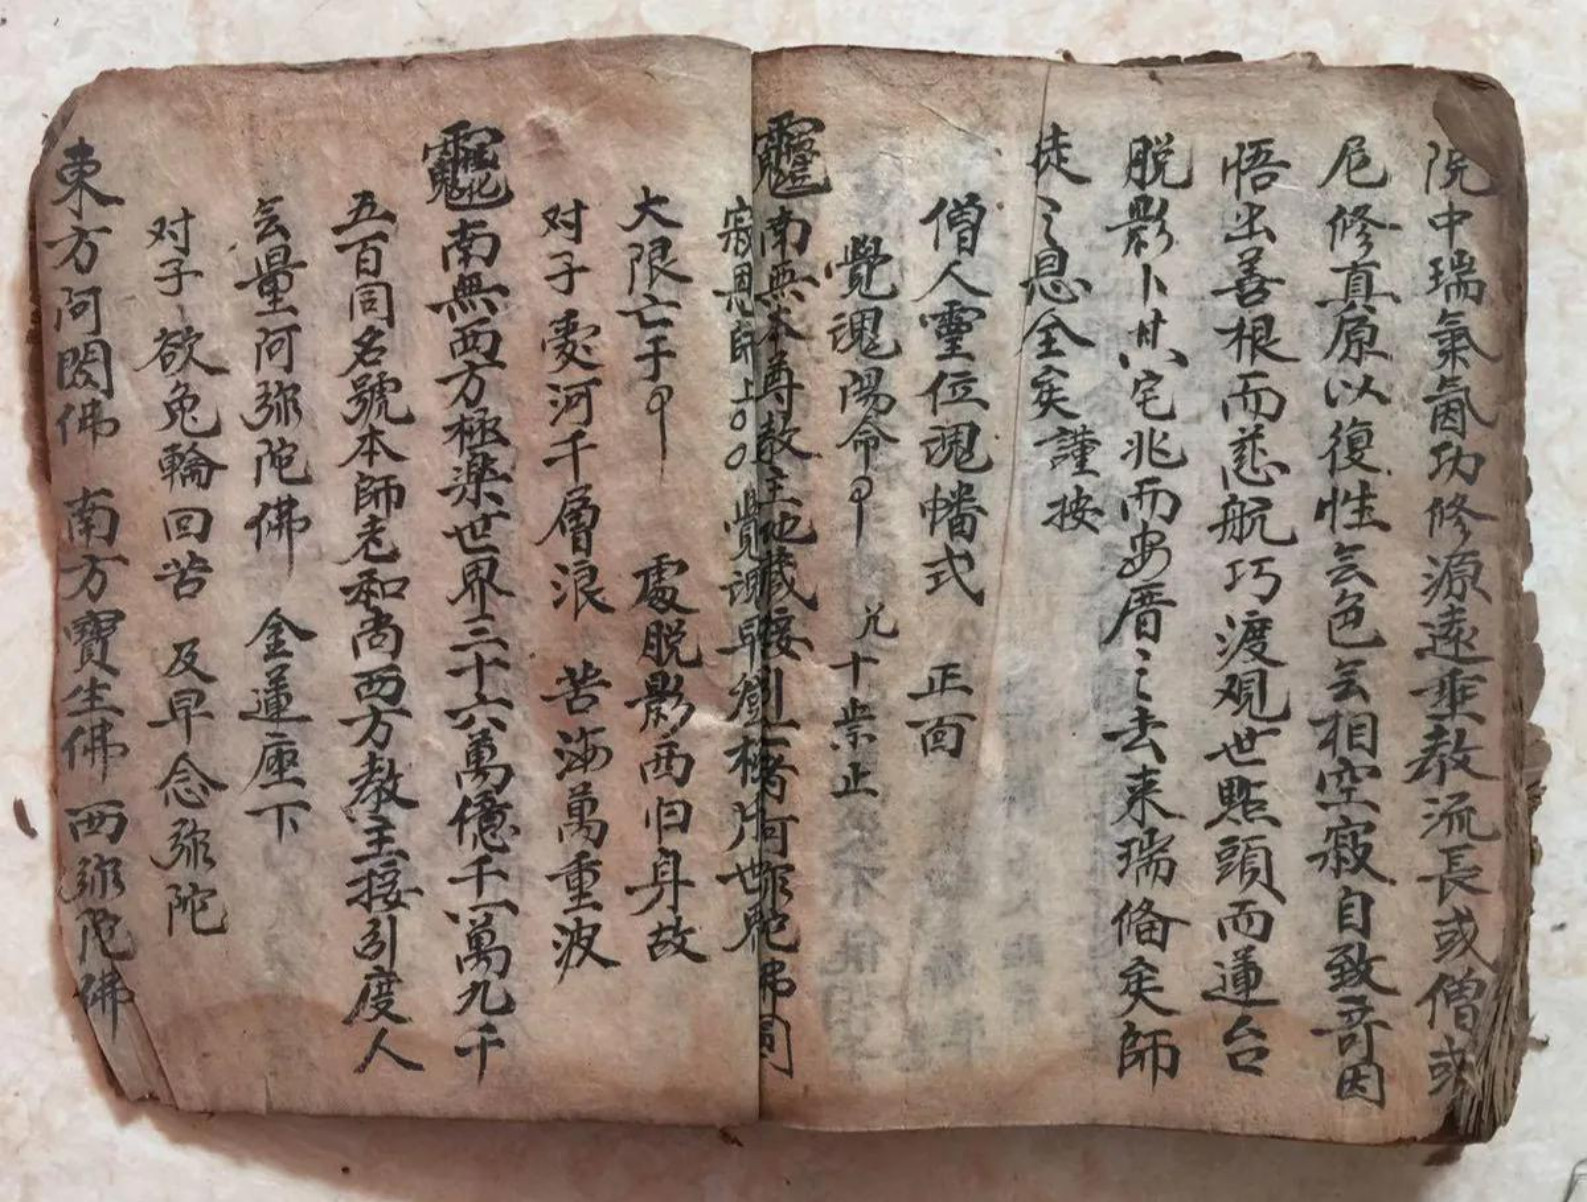 院中瑞氣氤功修源遠垂教流長或僧或
尼修真原以復性会色会相空寂自致奇因
悟出善根而慈航巧渡观世點頭而蓮台
脱影卜其宅兆而安厝之去来瑞俻矣師
徒之恩全矣謹按
僧人靈位魂幡式 正面
覺魂陽命 十
南無本尊教主地藏接引
寂恩師上 覺魂早登
大限亡于 處脱影西归身故
对子 愛河千層浪 苦海萬重波
南無西方極楽世界三十六萬億千一萬九千
五百同名號本師老和尚西方教主接引度人
会量阿弥陀佛 金蓮座下
对子 欲免輪回苦 及早念弥陀
東方阿閦佛 南方寶生佛 西弥陀佛